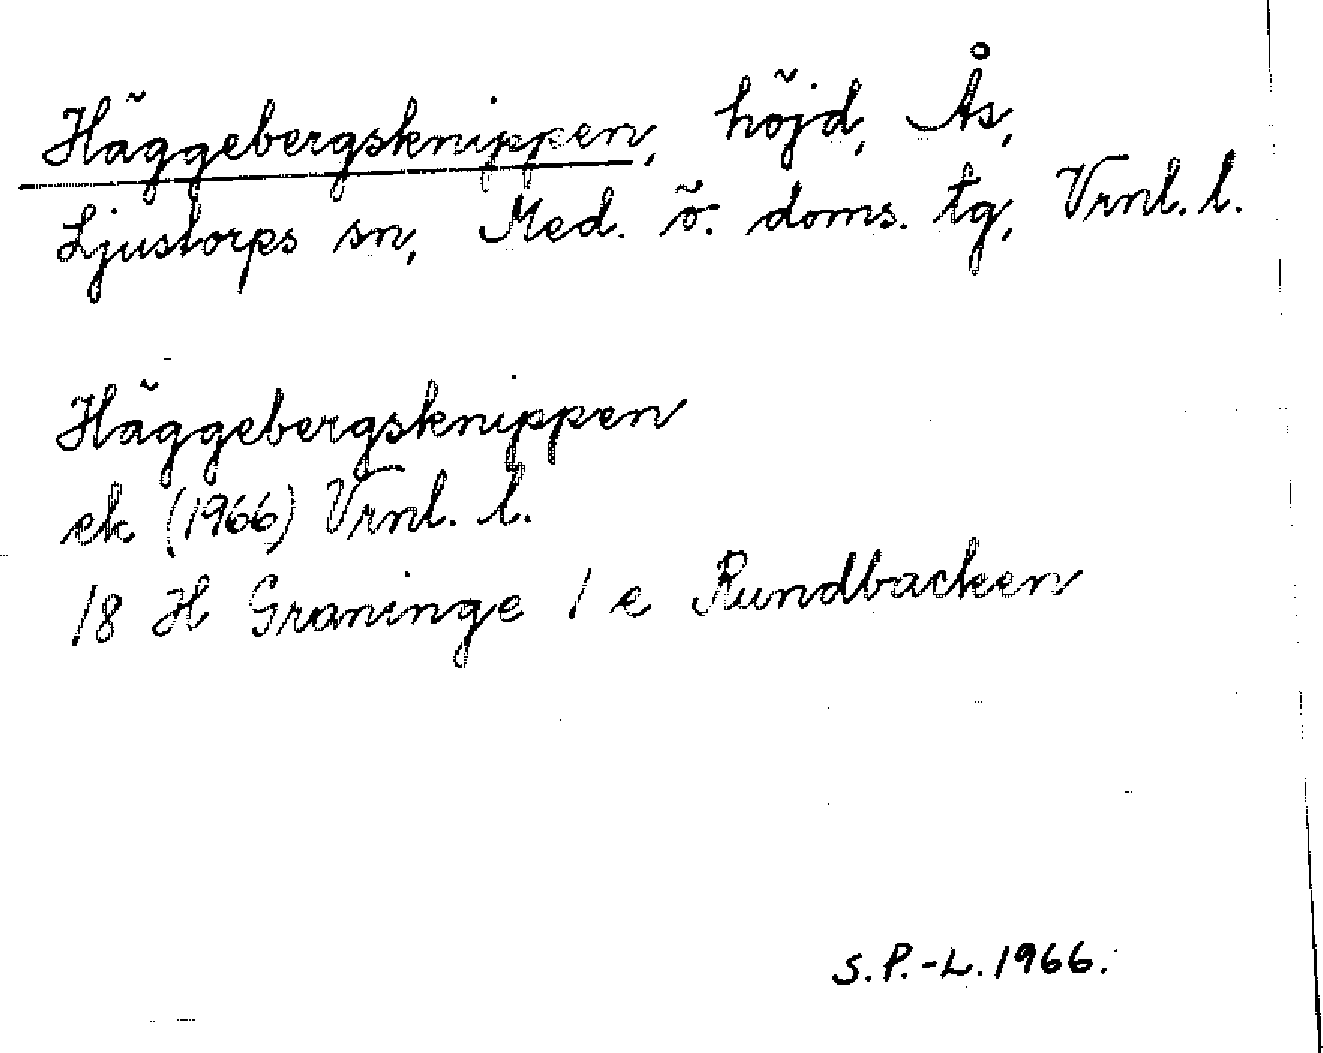 Häggebergsknippen, höjd, Ås,
Ljustorps sn, Med. ö. doms. tg, Vrnl. l.
Häggebergsknippen
ek (1966) Vrnl. l.
18 H Graninge 1 e Rundbacken
S.P.-L. 1966.